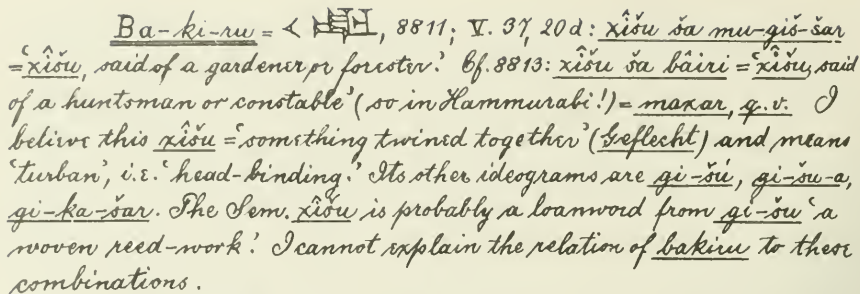 Ba-ki-ru = 𒌋 , 8811; V. 37, 20d: xîšu ša mu-giš-šar
= ‘xîšu, said of a gardener or forester.’ Cf. 8813: xîšu ša bâiri = ‘xîšu, said
of a huntsman or constable’ (so in Hammurabi!) = maxar, q.v. I
believe this xîšu = ‘something twined together’ (Geflecht) and means
‘turban’, i.e. ‘head-binding.’ Its other ideograms are gi-šú, gi-šu-a,
gi-ka-šar. The Sem. xîšu is probably a loanword from gi-šu ‘a
woven reed-work.’ I cannot explain the relation of bakiru to these
combinations.